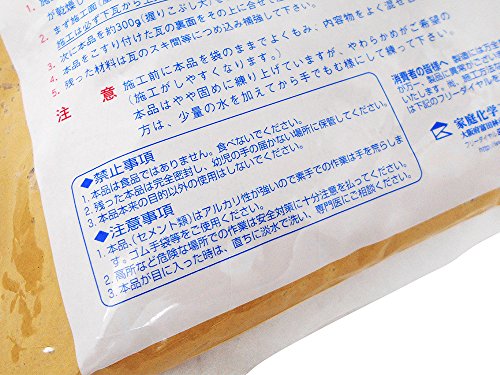 が乾燥し
1.
2. まず施工面(屋
施工は必ず下瓦から上
3. 次に本品を約300g(握りこぶし大)
4. こすり付けた瓦の裏面をその上に合せて
5. 残った材料は瓦のスキ間等につめ込み補強して下さい。
注意 施工前に本品を袋のままでよくもみ、内容物をよく混ぜ
(施工がしやすくなります。)
本品はやや固めに練り上げていますが、やわらかめがご希望の
方は、少量の水を加えてから手でもむ様にして練って下さい。
◆禁止事項
1. 本品は食品ではありません。食べないでください。
2. 残った本品は完全密封し、幼児の手の届かない場所に保管してください。
3. 本品本来の目的以外の使用はしないでください。
◆注意事項
1. 本品、(セメント類)はアルカリ性が強いので素手での作業は手を荒らしま
す。ゴム手袋等をご使用ください。
2. 高所など危険な場所での作業は安全対策に十分注意を払ってください。
3. 本品が目に入った時は、直ちに淡水で洗い、専門医にご相談ください。
消費者の皆様へ 製造には万全
が万一、製品に異状がござい
いたします。尚、施工方法
は下記のフリーダイヤル
家庭化学
大阪府富田林
フリーダイヤル
http:/